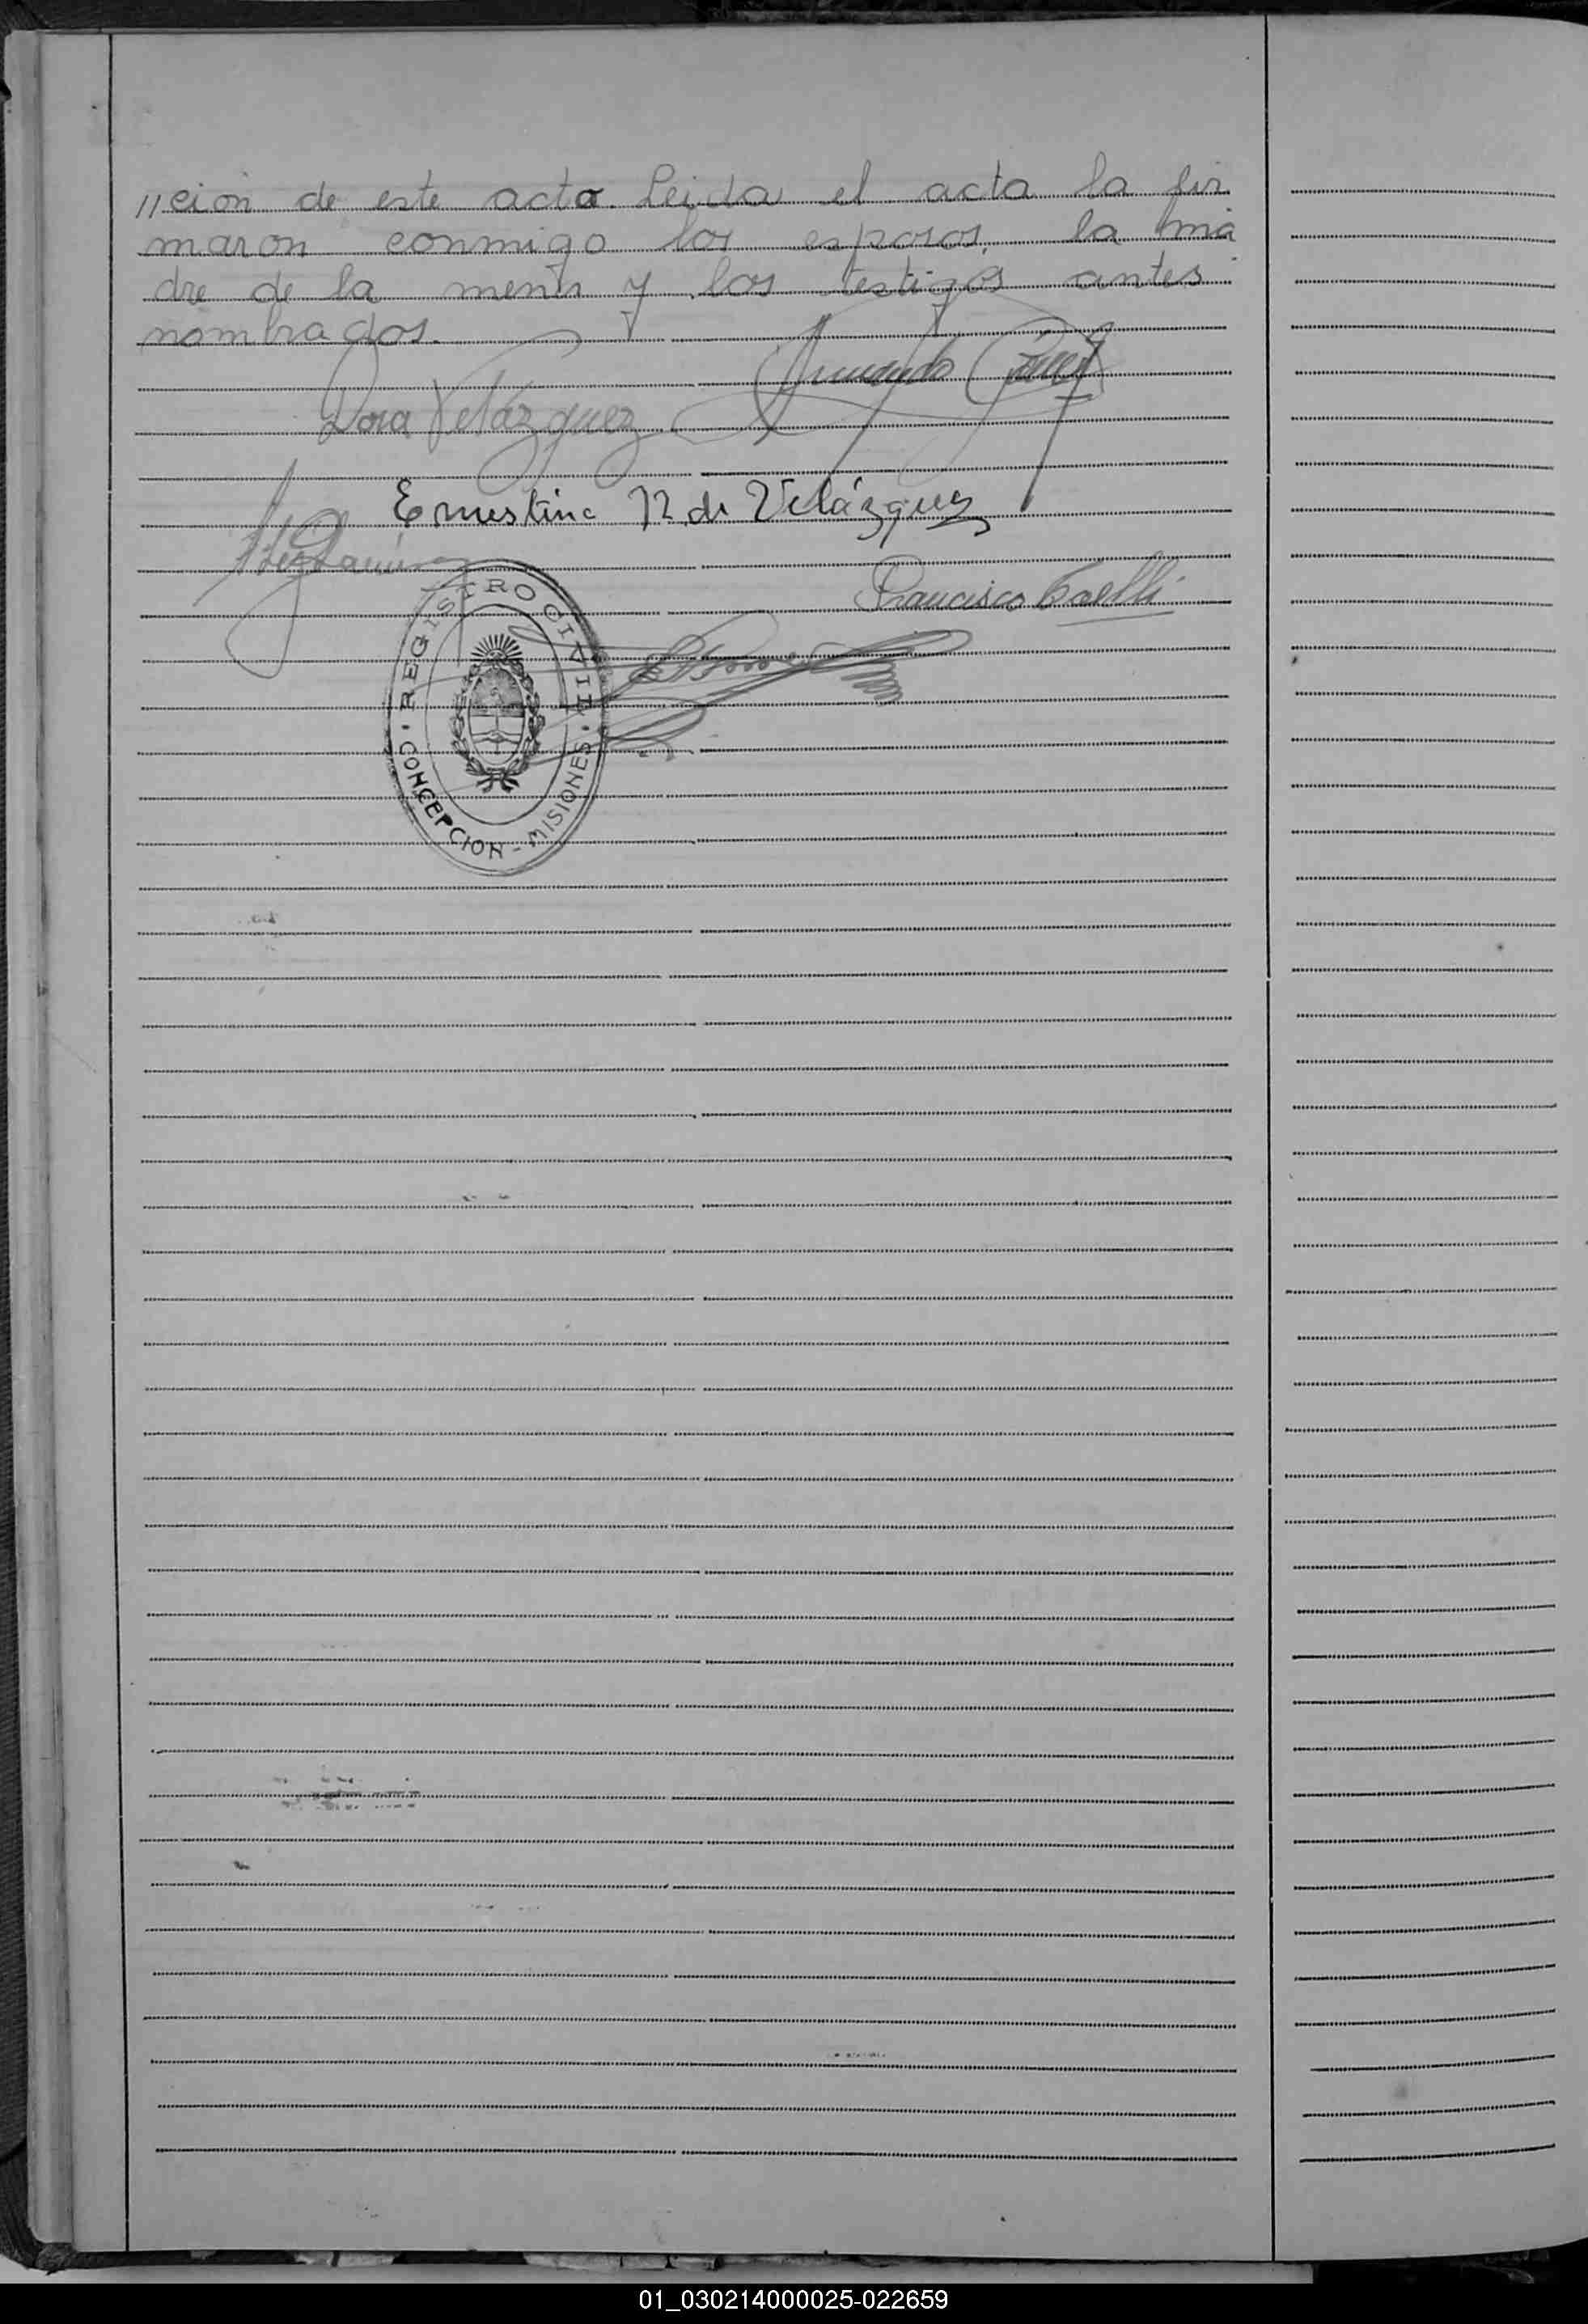 //ción de este acto. Leida el acta la fir
maron conmigo los esposos, la ma
dre de la menor y los testigos antes
nombrados.
Armando Gómez
Dora Velázquez
Ernestina N. de Velázquez
Francisco
REGISTRO CIVIL
CONCEPCION - MISIONES
01_030214000025-022659